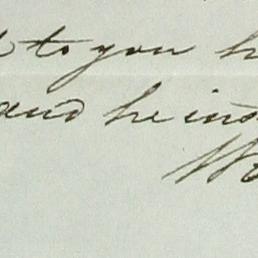 to you h
and he ins
W